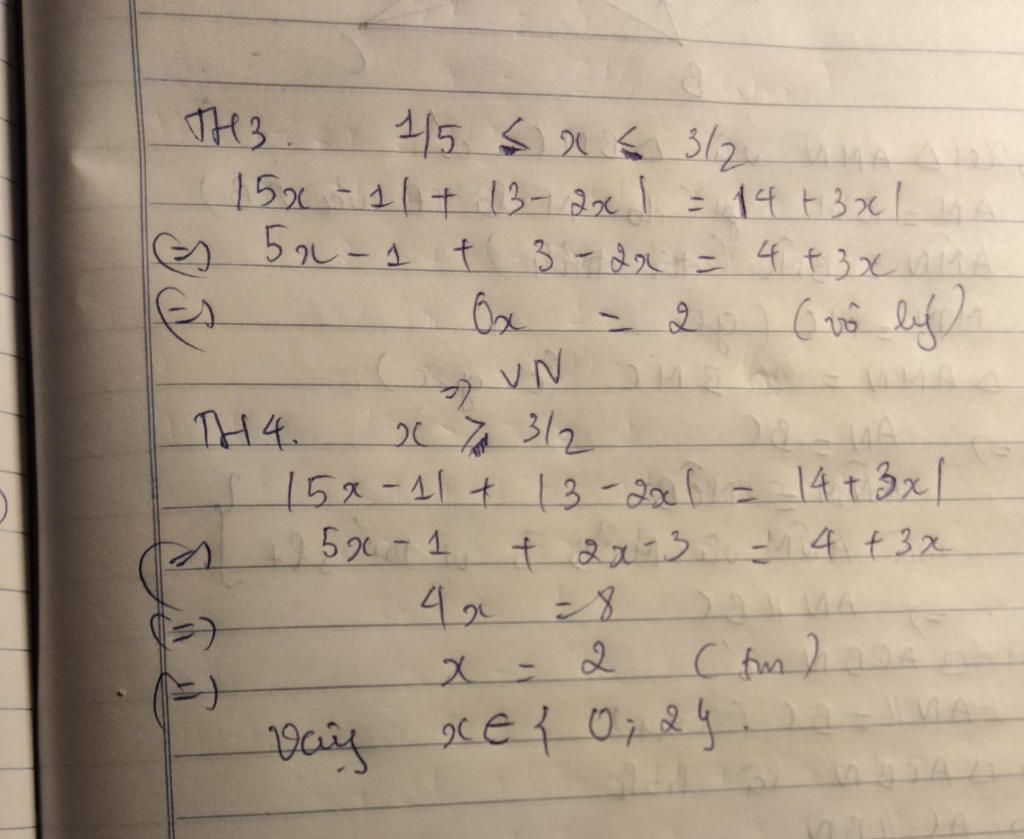 TH3. 1/5 ≤ x ≤ 3/2
|5x - 1| + |3 - 2x| = |4 + 3x|
(=) 5x - 1 + 3 - 2x = 4 + 3x
(=) 0x = 2 (vô lý)
=> VN
TH4. x ≥ 3/2
|5x - 1| + |3 - 2x| = |4 + 3x|
(=) 5x - 1 + 2x - 3 = 4 + 3x
(=) 4x = 8
(=) x = 2 (tm)
Vậy x ∈ { 0; 2}.